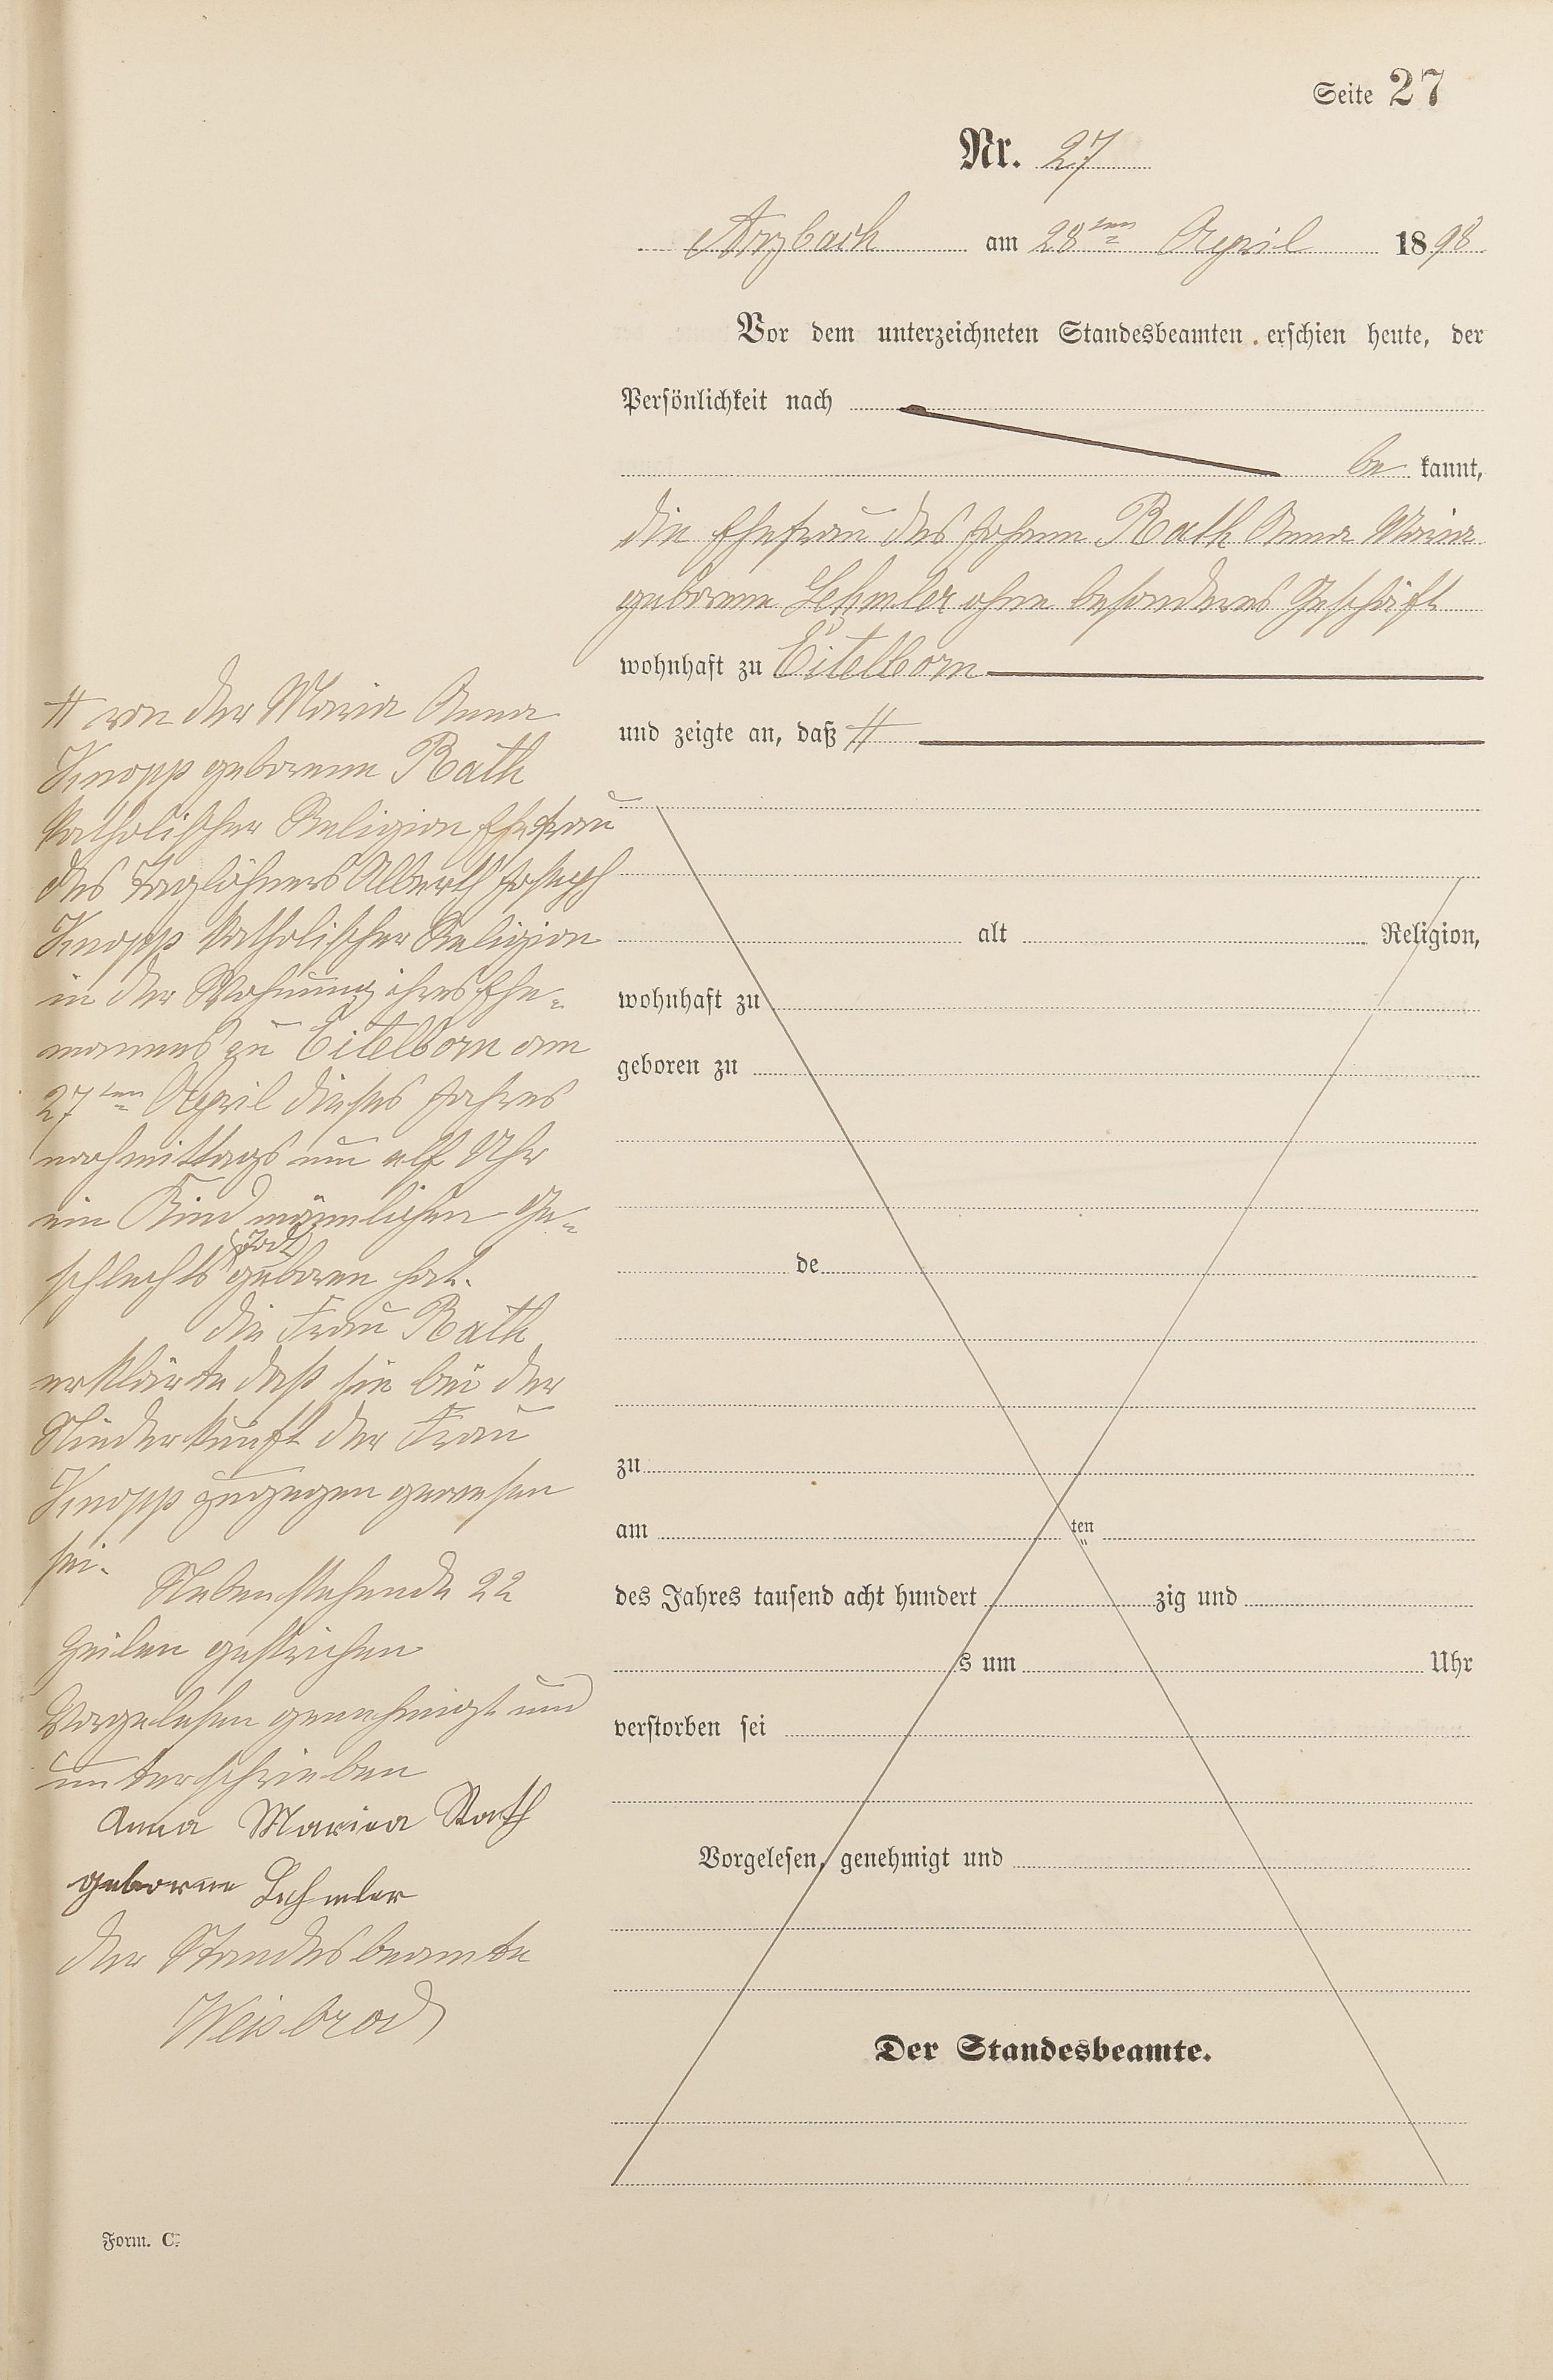 Seite 27
Nr. 27
Arzbach am 28ten April 1898
Vor dem unterzeichneten Standesbeamten erschien heute, der
Persönlichkeit nach
be kannt,
die Ehefrau des Johann Rath Anna Maria
geborene Lehmler ohne besonderes Geschäft
wohnhaft zu Eitelborn
und zeigte an, daß #
alt Religion,
wohnhaft zu
geboren zu
de
zu
am ten
des Jahres tausend acht hundert zig und
s um Uhr
verstorben sei
Vorgelesen, genehmigt und
Der Standesbeamte.
# von der Maria Anna
Knopp geborene Rath
katholischer Religion Ehefrau
des Taglöhners Alberth Joseph
Knopp katholischer Religion
in der Wohnung ihres Ehe-
mannes zu Eitelborn am
27ten April dieses Jahres
nachmittags um elf Uhr
ein Kind männlichen Ge-
schlechts (todt) geboren hat.
die Frau Rath
erklärte daß sie bei der
Niederkunft der Frau
Knopp zugegen gewesen
sei.
Nebenstehende 22
Zeilen gestrichen
Vorgelesen genehmigt und
unterschrieben
Anna Mariea Rath
geborne Lehmler
der Standesbeamte
Weisbrod
Form. C.